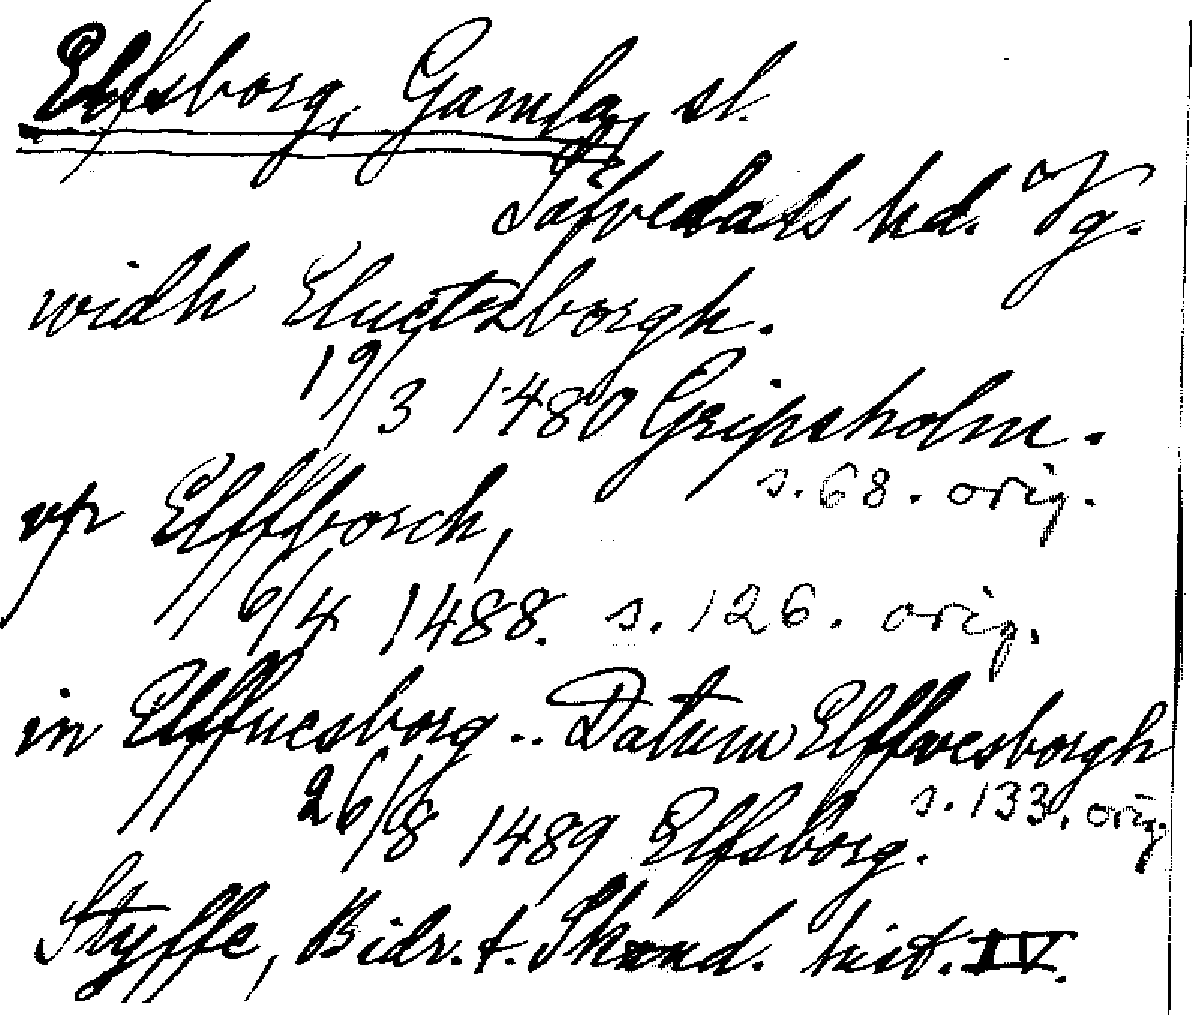 Elfsborg, Gamla, sl.
Säfvedals hd. Vg.
widh Eluetzborgh.
19/3 1480 Gripsholm.
s. 68. orig.
vp Elffborch,
6/4 1488. s. 126. orig.
in Elffuesborg .. Datum Elffwesborgh
26/8 1489 Elfsborg. s. 133. orig.
Styffe, Bidr. t. Skand. hist. IV.